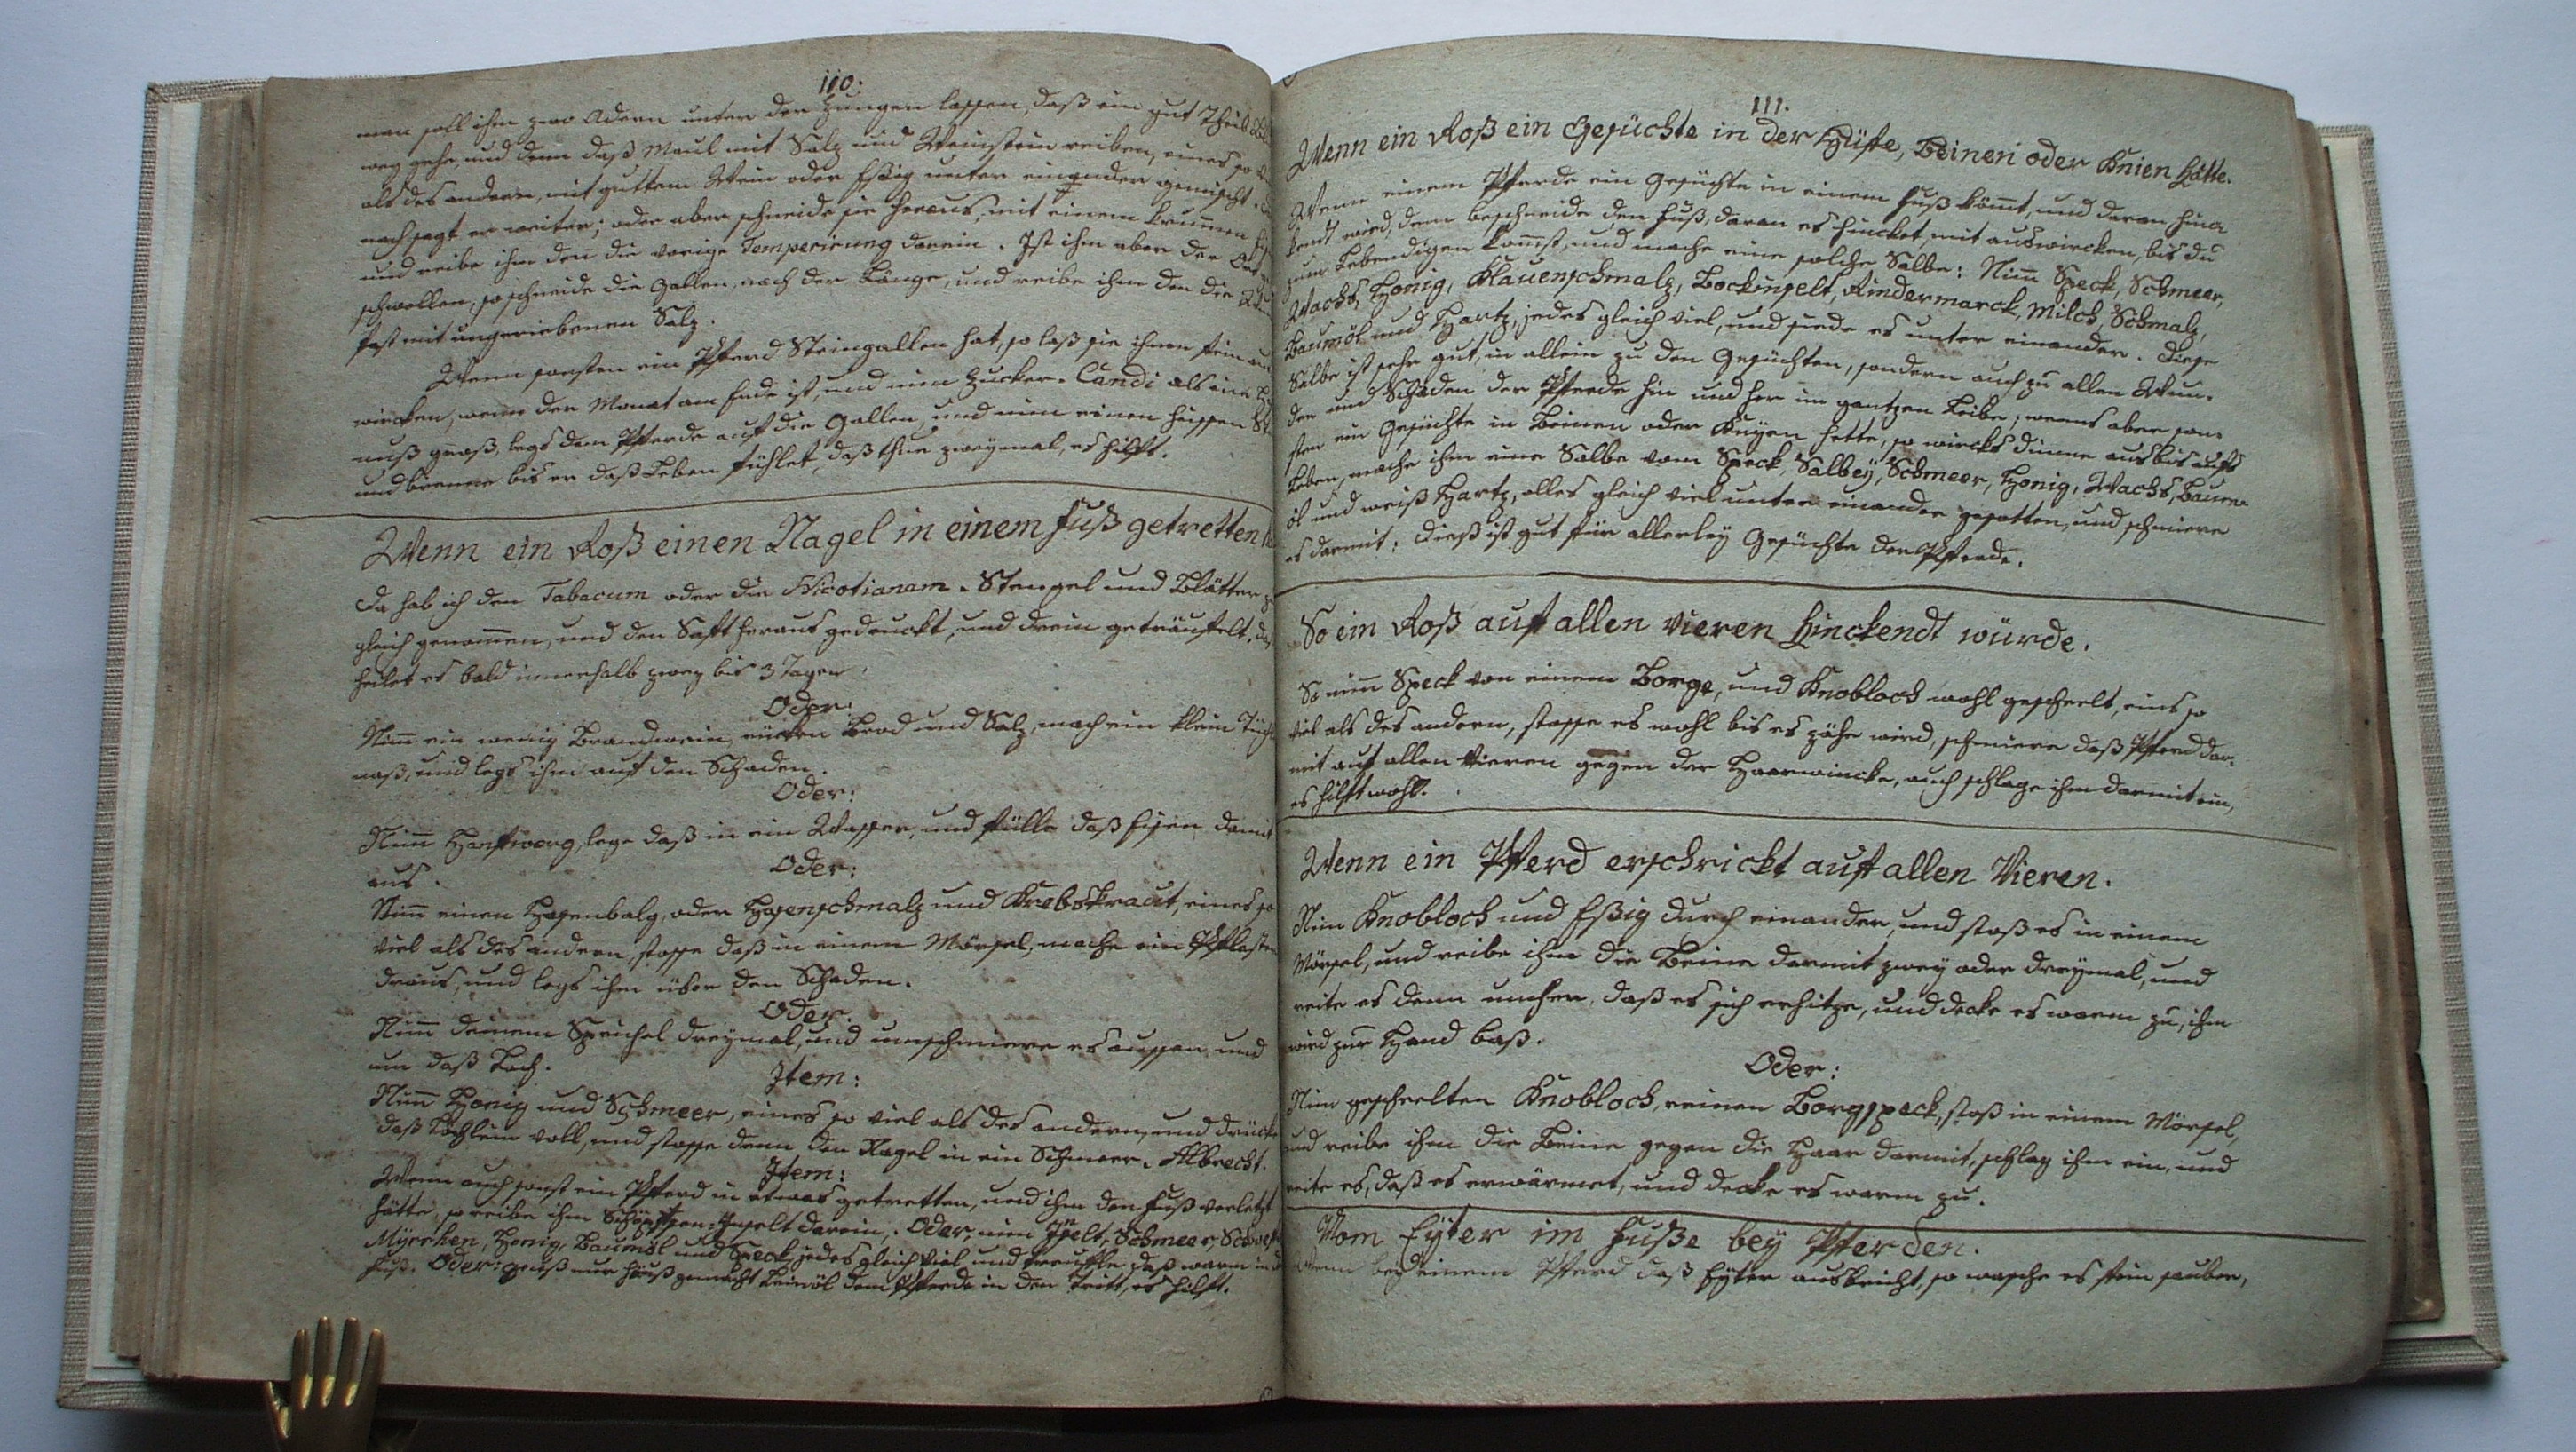 110.
man soll ihm zwo Adern unter der Zungen lassen, daß ein gut Theil
weg gehe, und denn daß Maul mit Salz und Weinstein reiben, eines so
als des andern, mit guttem Wein oder Eßig unter einander gemischt.
nach sagt er weiter; oder aber schneide sie heraus, mit einem krummen
und reibe ihm den die vorige Temperirung darein. Ist ihm aber der
schwollen, so schneide die Gallen, nach der Länge, und reibe ihm den die
fast mit ungeriebenen Salz.
Wenn sonsten ein Pferd Steingallen hat, so laß sie ihnen fein
wircken, wenn der Monat am Ende ist, und nim Zucker-Candi als eine
nuß groß, legs dem Pferde auf die Gallen, und nim einen heissen
und brenne bis er daß Leben fühlet, daß thue zweymal, es hilft.
Wenn ein Roß einen Nagel in einem Fuß getretten
Da hab ich den Tabacum oder die Nicotianam-Stengel und Blätter
gleich genommen, und den Saft heraus gedruckt, und drein geträufelt,
heilet es bald innerhalb zwey bis 3 Tagen.
Oder:
Nimm ein wenig Brandwein, rücken Brod und Salz, mach ein klein
naß, und legs ihm auf den Schaden.
Oder:
Nimm Hanfwerg, lege daß in ein Wasser, und fülle daß Eisen damit
aus.
Oder:
Nimm einen Hasenbalg, oder Hasenschmalz und Krebskraut, eines so
viel als des andern, stosse daß in einem Mörsel, mache ein Pflaster
draus, und legs ihm über den Schaden.
Oder.
Nimm deinen Speichel dreymal, und umschmiere es aussen und
um daß Loch.
Item:
Nimm Honig und Schmeer, eines so viel als des andern, und drücke
daß Löchlein voll, und stosse denn den Nagel in ein Schmeer. Albrecht.
Item:
Wenn auch sonst ein Pferd in etwas getretten, und ihm den Fuß verletzt
hätte, so reibe ihm Schöpsen-Inselt darein. Oder, nim Inselt, Schmeer,
Myrrhen, Honig, Baumöl und Speck jedes gleich viel, und treufle daß warm in
Fuß. Oder: geuß nur heiß gemacht Leinöl dem Pferde in den Tritt, es hilft.
111.
Wenn ein Roß ein Gesüchte in der Hüfte, Beinen oder Knien hätte.
Wenn einem Pferde ein Gesüchte in einem Fuß kömt, und daran hinc
kendt wird, dem beschneide den Fuß, daran es hincket, mit auswircken, bis du
zum Lebendigen komst, und mache eine solche Salbe: Nim Speck, Schmeer,
Wachs, Honig, Klauenschmalz, Bockinselt, Rindermarck, Milch, Schmalz,
Baumöl und Hartz, jedes gleich viel, und siede es unter einander. Diese
Salbe ist sehr gut, in allein zu den Gesüchten, sondern auch zu allen Wun-
den und Schäden der Pferde hin und her im gantzen Leibe; wenns aber son-
sten ein Gesüchte in Beinen oder Knyen hette, so wircks dünne aus bis aufs
Leben, mache ihm eine Salbe vom Speck, Salbey, Schmeer, Honig, Wachs, Baum-
öl und weiß Hartz, alles gleich viel unter einander gesotten, und schmiere
es darmit: dieß ist gut für allerley Gesüchte der Pferde.
So ein Roß auf allen Vieren hinckendt würde.
So nim Speck von einem Borge, und Knobloch wohl gescheelt, eins so
viel als des andern, stosse es wohl bis es zähe wird, schmiere daß Pferd dar-
mit auf allen Vieren gegen der Haarwincke, auch schlage ihm darmit ein,
es hilft wohl.
Wenn ein Pferd erschrickt auf allen Vieren.
Nim Knobloch und Eßig durch einander, und stoß es in einem
Mörsel, und reibe ihm die Beine darmit zwey oder dreymal, und
reite es denn umher, daß es sich erhitze, und decke es warm zu, ihm
wird zur Hand baß.
Oder:
Nim gescheelten Knobloch, reinen Borgspeck, stoß in einem Mörsel,
und reibe ihm die Beine gegen die Haar darmit, schlag ihm ein, und
reite es, daß es erwärmet, und decke es warm zu.
Vom Eyter im Fuße bey Pferden.
Wenn bey einem Pferd daß Eyter ausbricht, so wasche es fein sauber,